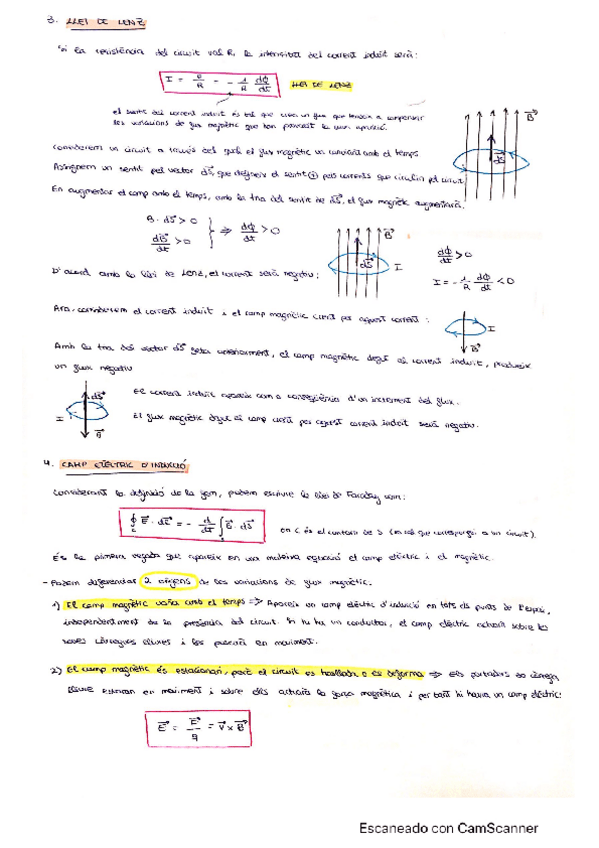 3. LLEI DE LENZ
Si la resistència del circuit val R, la intensitat del corrent induït serà:
I = ε/R = - 1/R dΦ/dt LLEI DE LENZ
el sentit del corrent induït és tal que crea un flux que tendeix a compensar
les variacions de flux magnètic que han provocat la seva aparició.
Considerem un circuit a través del qual el flux magnètic va canviant amb el temps
Assignem un sentit pel vector dS, que defineix el sentit + pels corrents que circulin pel circuit
En augmentar el camp amb el temps, amb la tria del sentit de dS, el flux magnètic augmentarà.
B
dS
B · dS > 0
dB/dt > 0
⇒ dΦ/dt > 0
B
dS
I
dΦ/dt > 0
I = - 1/R dΦ/dt < 0
D'acord amb la llei de Lenz, el corrent serà negatiu;
Ara, considerem el corrent induït i el camp magnètic creat per aquest corrent:
I
B
Amb la tria del vector dS anteriorment, el camp magnètic degut al corrent induït, produeix
un flux negatiu
dS
I
B
El corrent induït apareix com a conseqüència d'un increment del flux.
El flux magnètic degut al camp creat per aquest corrent induït serà negatiu.
4. CAMP ELÈCTRIC D'INDUCCIÓ
Considerant la definició de la fem, podem escriure la llei de Faraday com:
∮c E · dl = - d/dt ∫s B · dS
on C és el contorn de S (no cal que correspongui a un circuit).
És la primera vegada que apareix en una mateixa equació el camp elèctric i el magnètic.
- Podem diferenciar 2 orígens de les variacions de flux magnètic.
1) El camp magnètic varia amb el temps => Apareix un camp elèctric d'inducció en tots els punts de l'espai,
independentment de la presència del circuit. Si hi ha un conductor, el camp elèctric actuarà sobre les
seves càrregues lliures i les posarà en moviment.
2) El camp magnètic és estacionari, però el circuit es trasllada o es deforma => Els portadors de càrrega
lliure estaran en moviment i sobre ells actuarà la força magnètica i per tant hi haurà un camp elèctric:
E = F/q = v x B
Escaneado con CamScanner